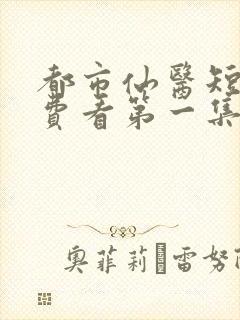 都市仙醫短
費看第一集
奥菲莉·雷努